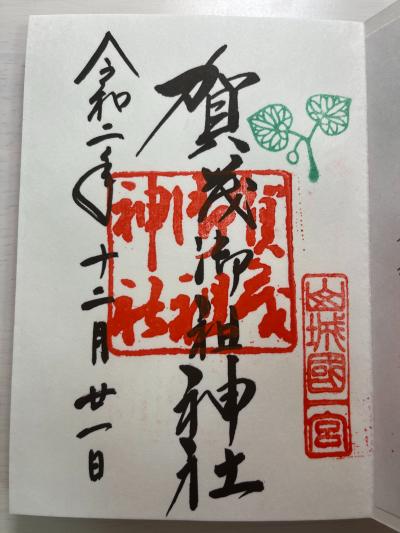 山城國一宮
賀茂御祖神社
賀茂御祖神社
令和二年十二月廿一日